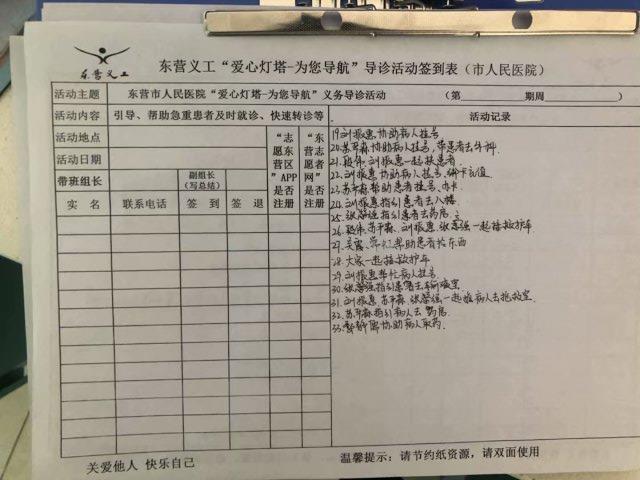 东营义工
东营义工“爱心灯塔-为您导航”导诊活动签到表（市人民医院）
活动主题 东营市人民医院“爱心灯塔-为您导航”义务导诊活动 （第 期周 ）
活动内容 引导、帮助急重患者及时就诊、快速转诊等
活动地点
活动日期
带班组长 副组长（写总结）
“志愿东营区”APP是否注册
“东营志愿者网”是否注册
实 名 联系电话 签 到 签 退
活动记录
19.刘振惠协助病人挂号
20.苏平森协助病人挂号,带患者去牙科.
21. 刘振惠一起扶患者
22.刘振惠协助病人挂号,绑卡充值
23.苏平森帮助患者挂号,办卡
24.刘振惠指引患者去入
25.张 强指引患者去药房.
26. 苏平森、刘振惠 张 强一起接救护车
27. 帮助患者 东西
28.大家一起接救护车
29.刘振惠帮忙病人挂号
30.张 强指引患者去
31.刘振惠 苏平森、张 强一起推病人去抢救室.
32.苏平森指引病人去药房
33. 协助病人取药.
关爱他人 快乐自己
温馨提示：请节约纸资源，请双面使用